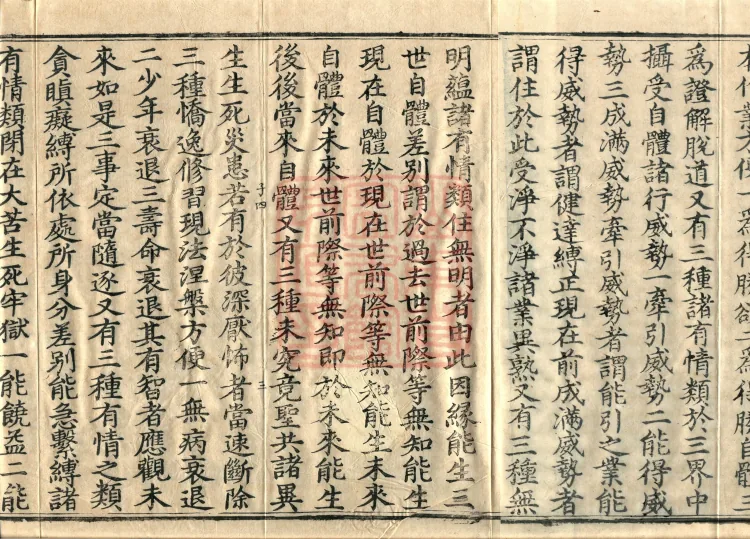 爲得勝自體三
爲證解脫道又有三種諸有情類於三界中
攝受自體諸行威勢一牽引威勢二能得威
勢三成滿威勢牽引威勢者謂能引之業能
得威勢者謂健達縛正現在前成滿威勢者
謂住於此受淨不淨諸業異熟又有三種無
明蘊諸有情類住無明者由此因緣能生三
世自體差別謂於過去世前際等無知能生
現在自體於現在世前際等無知能生未來
自體於未來世前際等無知即於未來能生
後後當來自體又有三種未究竟聖共諸異
子四 三
生生死災患若有於彼深厭怖者當速斷除
三種憍逸修習現法涅槃方便一無病衰退
二少年衰退三壽命衰退其有智者應觀未
來如是三事定當隨逐又有三種有情之類
貪瞋癡縛所依處所身分差別能急繫縛諸
有情類閉在大苦生死牢獄一能饒益二能